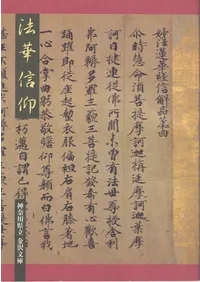 妙法蓮華經信解品第四
尒時慧命須菩提摩訶迦旃延摩訶迦葉摩
訶目揵連從佛所聞未曾有法世尊授舎利
弗阿耨多羅三藐三菩提記發希有心歡喜
踊躍即從座起整衣服偏袒右肩右膝著地
一心合掌曲躬恭敬瞻仰尊顔而白佛言我
朽邁自謂已得
法華信仰
神奈川県立 金沢文庫